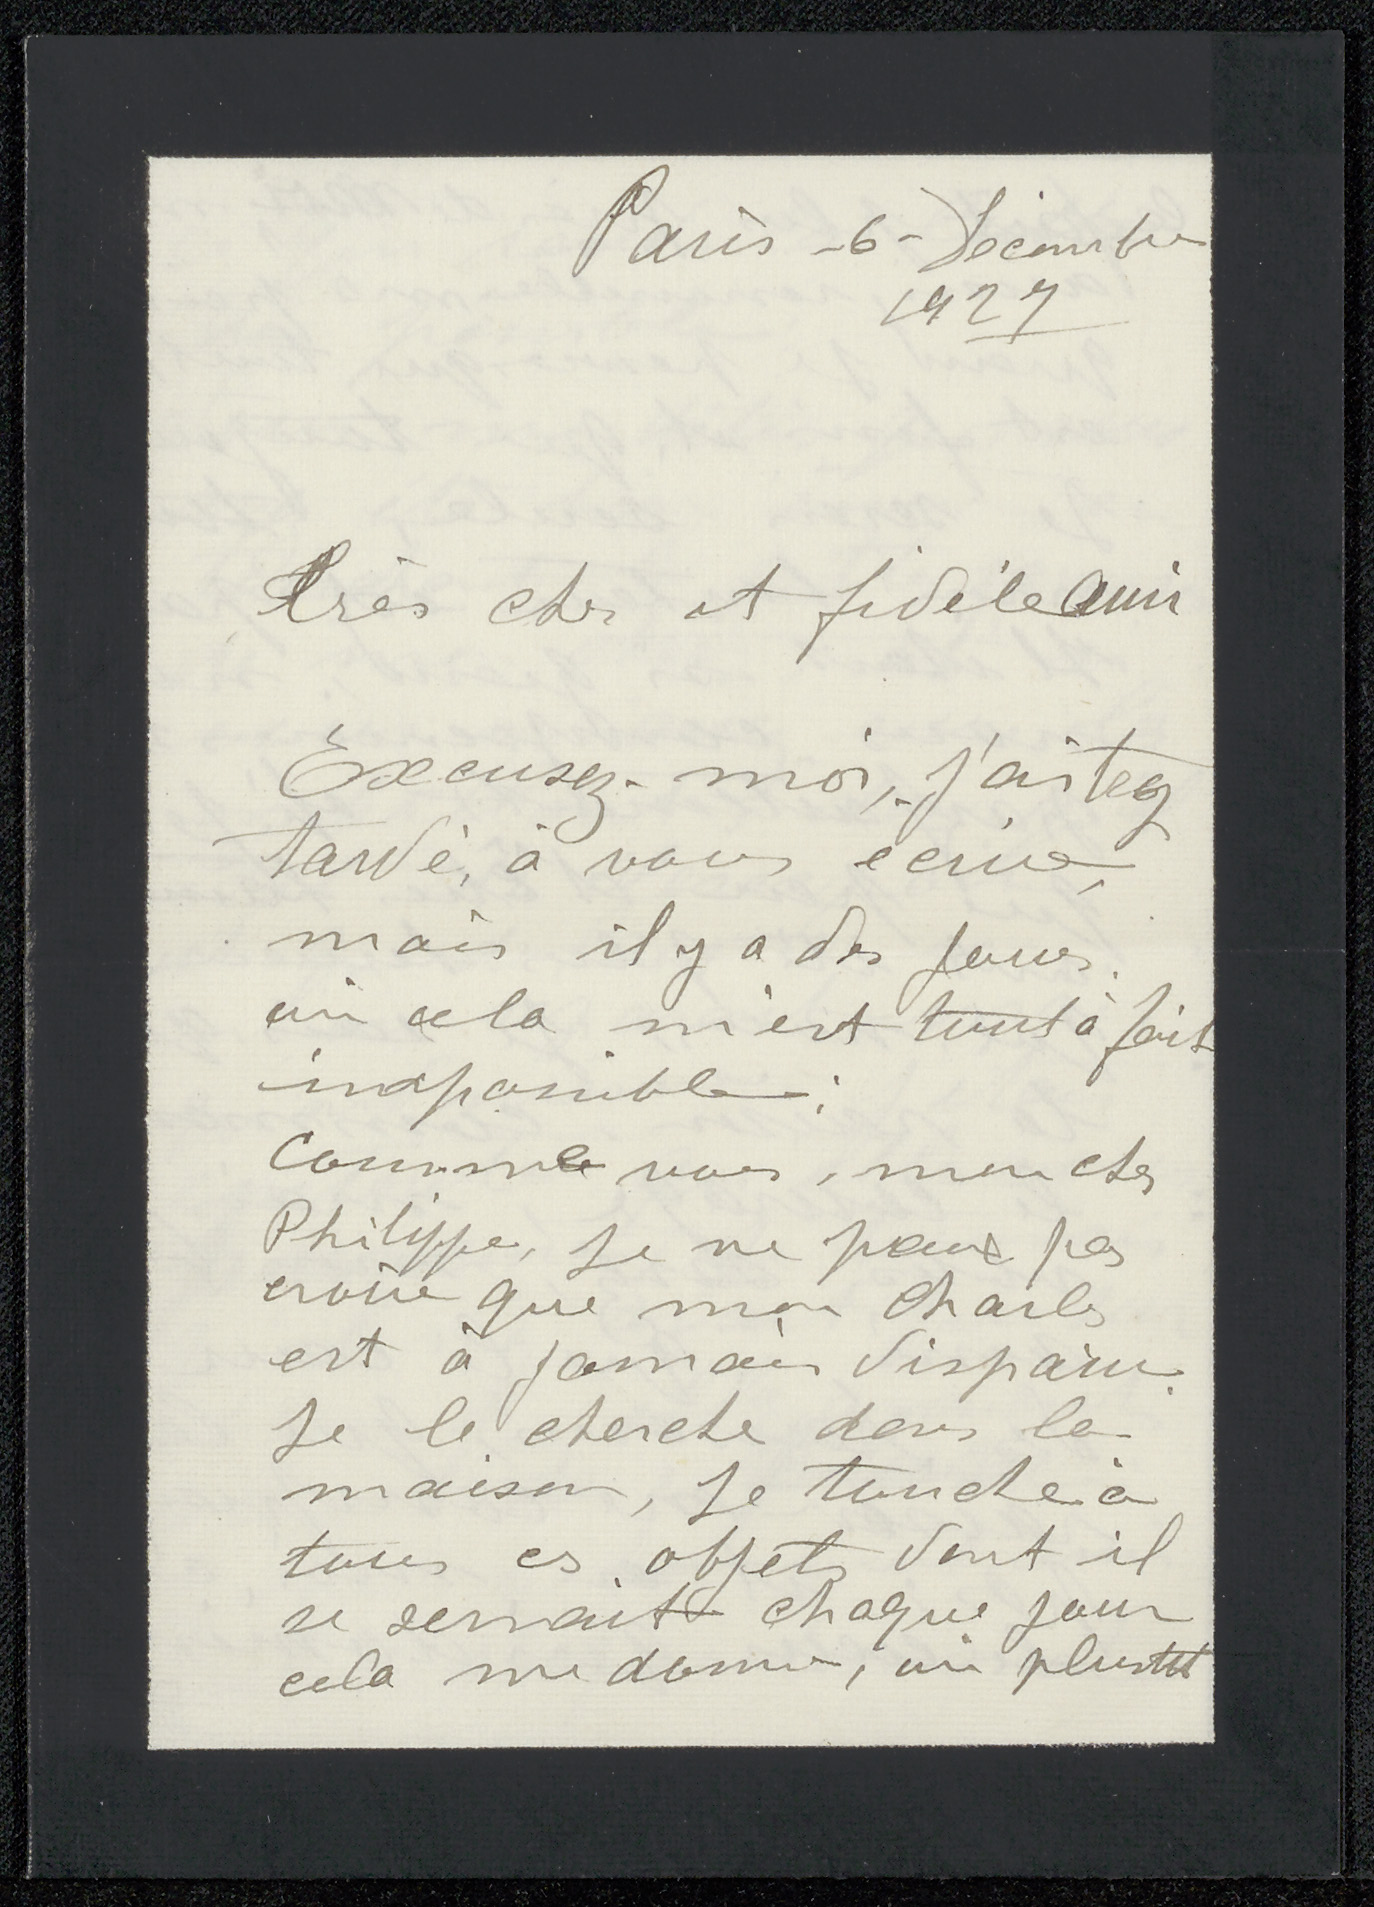 Paris -6- Décembre
1927
très cher et fidèle Ami
Excusez-moi, j'ai
tardé, à vous écrire,
mais il y a des jours
où cela m'est tout à fait
impossible;
Comme vous, mon cher
Philippe, je ne peux pas
croire que mon Charles
est à jamais disparu.
Je le cherche dans la
maison, je touche à
tous ces objets dont il
se servait chaque jour
cela me donne, ou plustôt